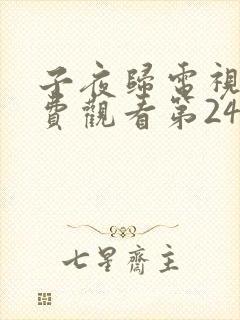 子夜歸電視
費觀看第24
七星齋主